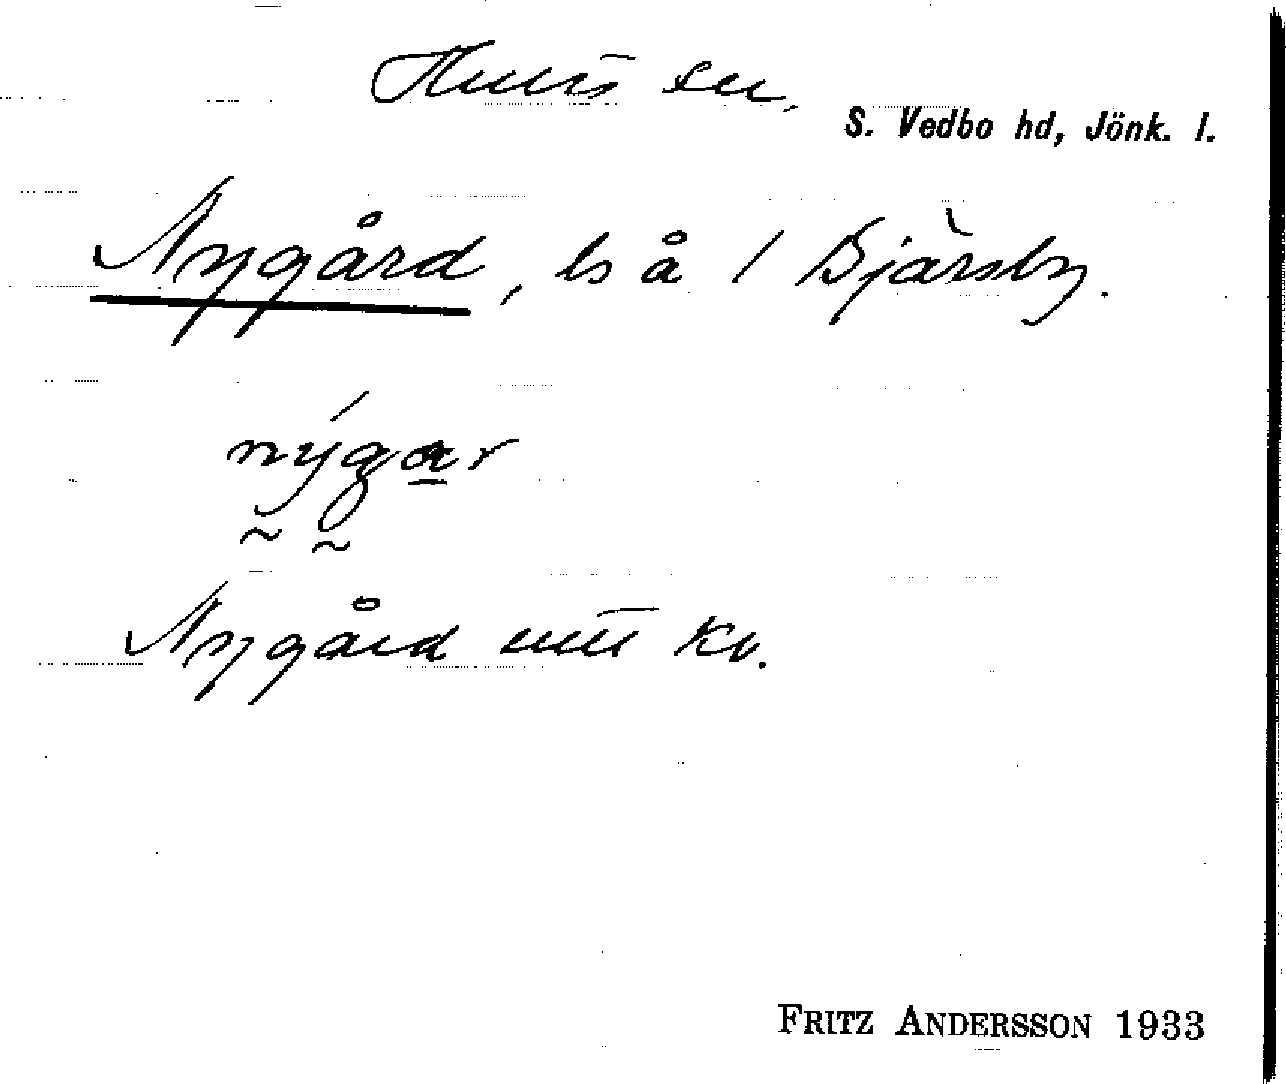 Hults sn.
S. Vedbo hd, Jönk. l.
Nygård, ls å 1 Bjärsby.
nýgar
Nygård kv.
FRITZ ANDERSSON 1933